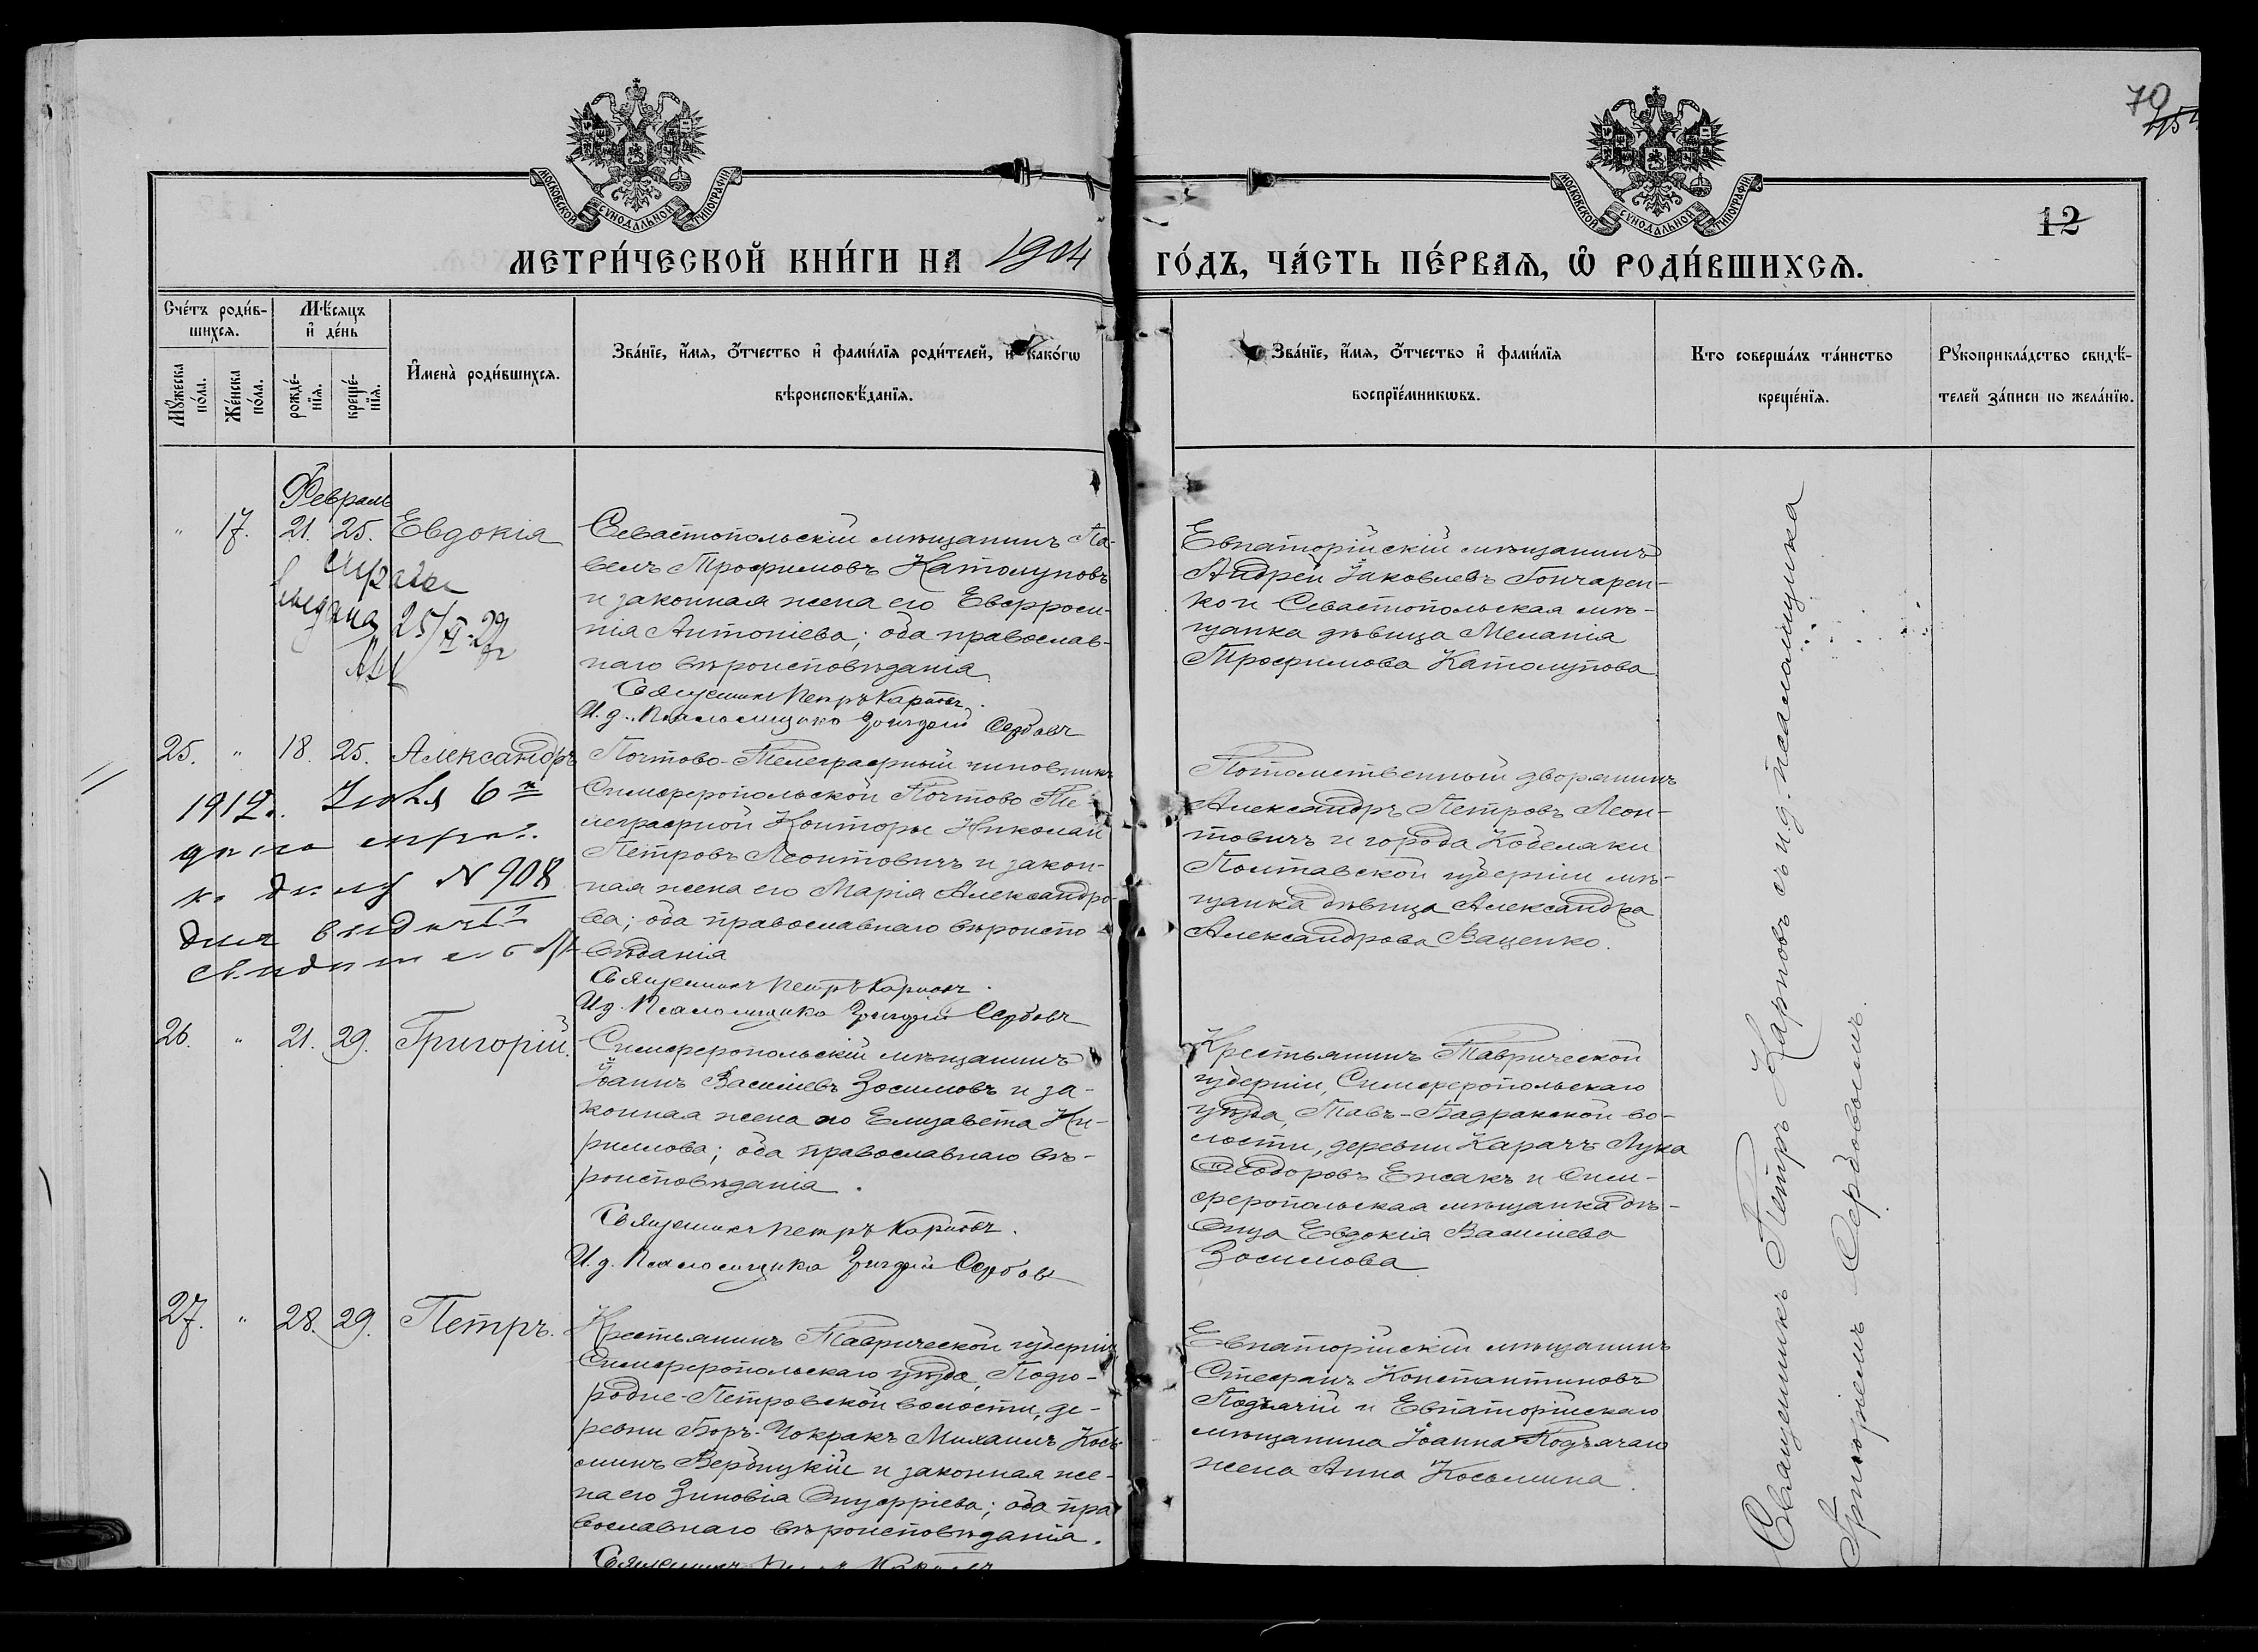 70
12
МОСКОВСКОЙ СУНОДАЛЬНОЙ ТИПОГРАФІИ
МОСКОВСКОЙ СУНОДАЛЬНОЙ ТИПОГРАФІИ
МЕТРИ́ЧЕСКОЙ КНИ́ГИ НА 1904 ГО́ДЪ, ЧА́СТЬ ПЕ́РВАѦ, Ѡ РОДИ́ВШИХСѦ.
Сче́тъ роди́в-
шихсѧ.
Мꙋ́жеска по́ла.
Же́нска по́ла.
Мѣ́сѧцъ
и де́нь
рожде́-
нїѧ.
креще́-
нїѧ.
Имена̀ роди́вшихсѧ.
Зва́нїе, и́мѧ, о́тчество и фами́лїѧ роди́телей, и како́гѡ
вѣроисповѣ́данїѧ.
Зва́нїе, и́мѧ, о́тчество и фами́лїѧ
воспрїе́мникѡвъ.
Кто соверша́лъ та́инство
креще́нїѧ.
Рꙋкоприкла́дство свидѣ́-
телей за́писи по жела́нїю.
Февраль
" 17. 21. 25. Евдокія
Севастопольскій мѣщанинъ Па-
велъ Трофимовъ Католуповъ
и законная жена его Евфроси-
нія Антоніева; оба православ-
наго вѣроисповѣданія
Священникъ Петръ Карповъ.
И. д. Псаломщика Григорій Сербовъ
Евпаторійскій мѣщанинъ
Андрей Іаковлевъ Гончарен-
ко и Севастопольская мѣ-
щанка дѣвица Меланія
Трофимова Католупова
25/XI-29
25. " 18. 25. Александръ
Почтово-Телеграфный чиновникъ
Симферопольской Почтово Те-
леграфной Конторы Николай
Петровъ Леонтовичъ и закон-
ная жена его Марія Александро-
ва; оба православнаго вѣроиспо-
вѣданія
Священникъ Петръ Карповъ.
И д. Псаломщика Григорій Сербовъ
Потомственный дворянинъ
Александръ Петровъ Леон-
товичъ и города Кобеляки
Полтавской губерніи мѣ-
щанка дѣвица Александра
Александрова Ваценко.
1912 г. Іюля 6
№ 908
26. " 21. 29. Григорій.
Симферопольскій мѣщанинъ
Іоаннъ Василіевъ Зосимовъ и за-
конная жена его Елизавета Ки-
риллова; оба православнаго вѣ-
роисповѣданія.
Священникъ Петръ Карповъ.
И. д. Псаломщика Григорій Сербовъ
Крестьянинъ Таврической
губерніи, Симферопольскаго
уѣзда, Тавъ-Бадракской во-
лости, деревни Карачъ Лука
Ѳеодоровъ Ежакъ и Сим-
ферopольская мѣщанка дѣ-
вица Евдокія Василіева
Зосимова
27. " 28. 29. Петръ.
Крестьянинъ Таврической губерніи
Симферопольскаго уѣзда, Подго-
родне-Петровской волости, де-
ревни Боръ-Чокракъ Михаилъ Кось-
минъ Вербицкій и законная же-
на его Зиновія Онуфріева; оба пра-
вославнаго вѣроисповѣданія.
Священникъ Петръ Карповъ
Евпаторійскій мѣщанинъ
Стефанъ Константиновъ
Подъячій и Евпаторійскаго
мѣщанина Іоанна Подъячаго
жена Анна Косьмина.
Священникъ Петръ Карповъ съ и. д. псаломщика
Григоріемъ Сербовымъ.